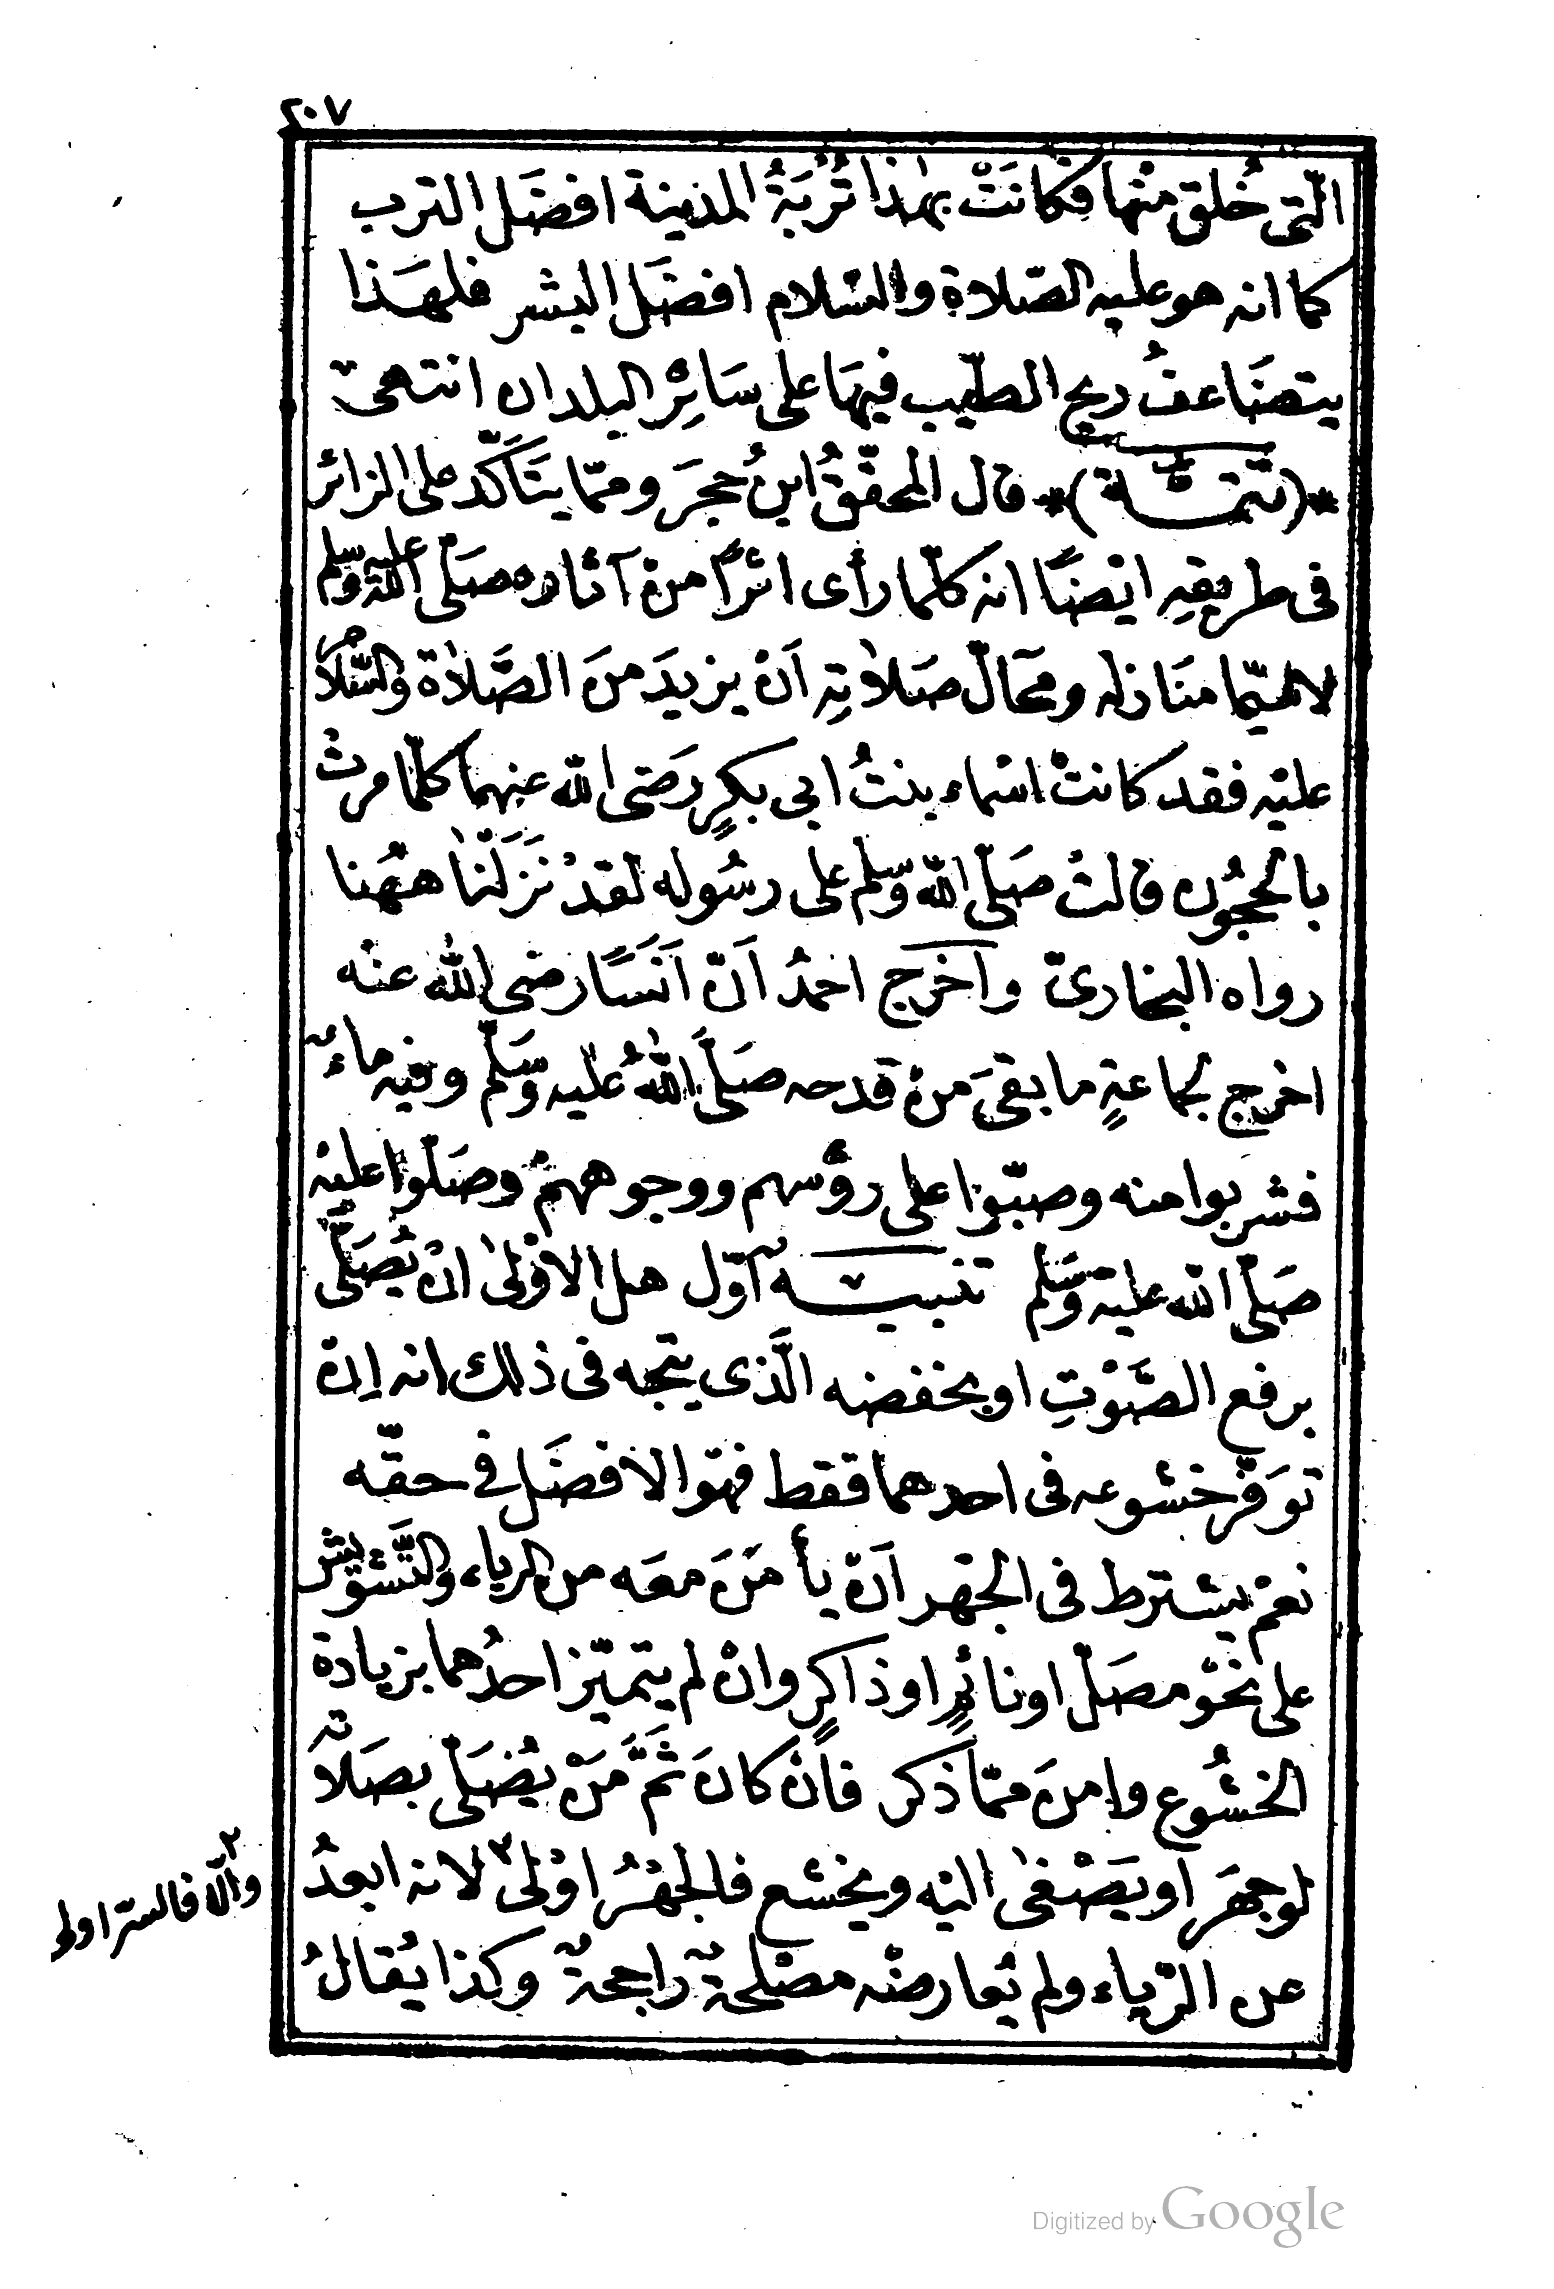 ٢٠٧
الّتى خُلق منْها فكانَتْ بهٰذا تُرْبَةُ المدينة افضَل الترب
كما انه هو عليه الصّلاة والسّلام افضَل البشر فلهَذا
يتضَاعفُ ريح الطيّب فيهَا على سَائِر البلدان انتهىٰ
*(تتمّة)* قال المحقّقُ ابنُ حجَر وممّا يتَأكّد على الزائر
فى طريقِه ايْضًا انه كلّما رأى اثرًا منْ آثاره صَلّى الله عليه وسّلم
لا سيّما منَازله ومحَالّ صَلاٰتِه اَنْ يزيدَ منَ الصَّلاٰة والسَّلاٰم
عليْه فقد كانتْ اسْماء بنتُ ابى بكرٍ رَضى الله عنهما كلّما مرتْ
بالحجُون قالتْ صَلّى الله وسّلم على رسُوله لقدْ نَزَلْنَا هٰهُنا
رواه البخارىّ واَخرَج احمدُ اَنّ اَنَسًا رضى الله عنْه
اخرج لجماعةٍ ما بقىَ منْ قدحه صَلَّى اللّٰهُ عليْه وَسَلّم وفيه ماءٌ
فشربوا منه وصبّوا على رؤسهم ووجوههمْ وصَلّوا عليْه
صَلّى الله عليْه وَسَلّم تنبيه اَوّل هل الاَوْلىٰ انْ يُصَلّى
برفع الصَّوْتِ او بخفضه الَّذى يتجه فى ذلك انه اِنْ
توَفّر خشوعه فى احدهما فقط فهوَ الافضَل فى حقّه
نعَمْ يشترط فى الجَهر اَنْ يأمَنَ معَه من الرياء والتَّشوْيش
على نحْو مصَلّ او نائمٍ او ذاكرٍ وانْ لم يتميّز احدُهما بزيادة
الخشُوع وامنَ ممّا ذكر فانْ كانَ ثَمَّ مَنْ يُصَلّى بصَلاته
لو جهَر او يصْغىٰ اليْه ويخشع فالجهْرُ اوْلىٰ٢ لانه ابعدُ
عن الرّياء ولم يُعارضْه مصْلحةٌ راجحةٌ وكذا يُقالُ
٢ والّا فالسرّ اولى
Digitized by Google